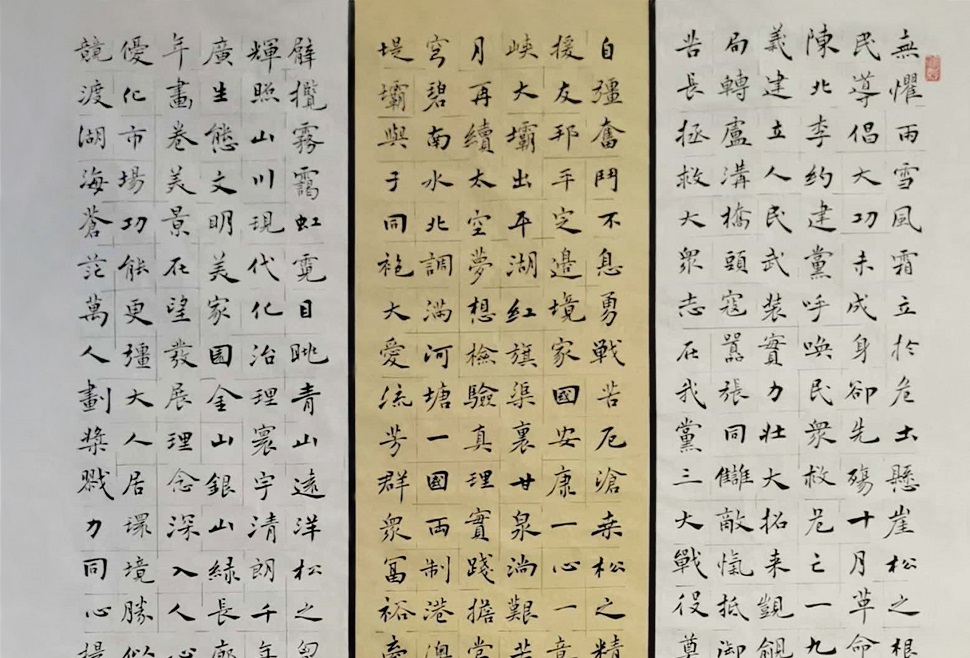 無懼雨雪風霜立於危土懸崖松之根
民導倡大功未成身卻先殤十月革命
陳北李約建黨呼喚民衆救危亡一九
義建立人民武装實力壮大拓来觊觎
局轉盧溝橋頭寇嚣張同讎敵愾抵御
苦長拯救大衆志在我黨三大戰役奠
自彊奮鬥不息勇戰苦厄滄桑松之精
援友邦平定邉境家國安康一心一意
峡大壩出平湖红旗渠裏甘泉淌艱苦
月再續太空夢想檢驗真理實踐擔當
穹碧南水北調满河塘一國两制港澳
堤壩與于同袍大愛流芳群衆冨裕
臂攬霧靄虹霓目眺青山遠洋松之
輝照山川現代化治理寰宇清朗千年
廣生態文明美家園金山銀山緑長廊
年畵卷美景在望發展理念深入人心
優化市場功能更彊大人居環境勝似
競渡湖海蒼茫萬人劃槳戮力同心